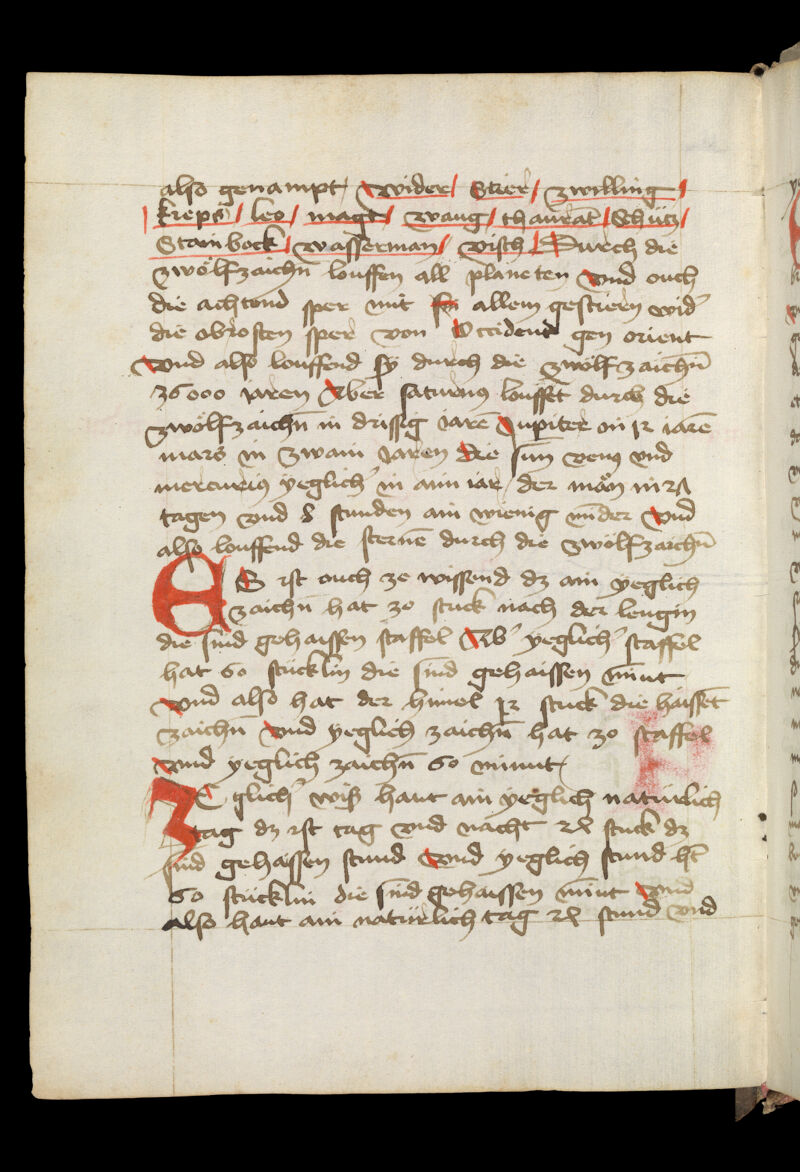 also genampt / wider / Stier / zwilling /
/ kreps / leo / magt / waug / thaurat / Schütz /
Stainbock / wasserman / visch / Durch die
zwölfzaichn̄ louffen all planeten vnd ouch
die achtend sper mit allem gestiern wid'
die obrosten sper von Occident gen orient
vnd also louffend sÿ durch die zwölfzaichn̄
36000 jaren Aber saturnus loufft durch die
zwölfzaichn̄ in drissig iarē Jupiter in 12 iarē
mars in zwain Jaren die sūn venus vnd
mercurius yeglich' in aim iar / der mön in 27
tagen vnd 8 stunden ain wienig mīder vnd
also louffend die sternē durch die zwölfzaichn̄
ES ist ouch ze wissend dz ain yeglich
zaichn̄ hat 30 stuck nach der lengin
die sind gehaissen staffel Ab' yeglich' staffel
hat 60 stücklin die sind gehaissen minut
vnd also hat der himel 12 stuck die haissēt
zaichn̄ vnd yeglich zaichn̄ hat 30 staffel
vnd yeglich zaichn̄ 60 minut
ZE glich' wiß haut ain yeglich natürlich
tag dz ist tag vnd nacht 24 stuck dz
sind gehaissen stund vnd yeglich stund ht
60 stücklin die sind gehaissen minut vnd
also haut ain natürlich tag 24 stund vnd